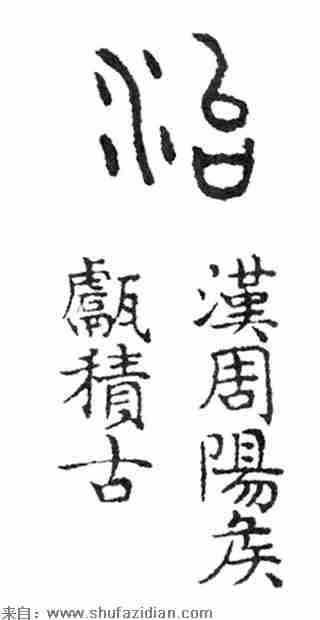 治
漢周陽矦
甗積古
来自：www.shufazidian.com